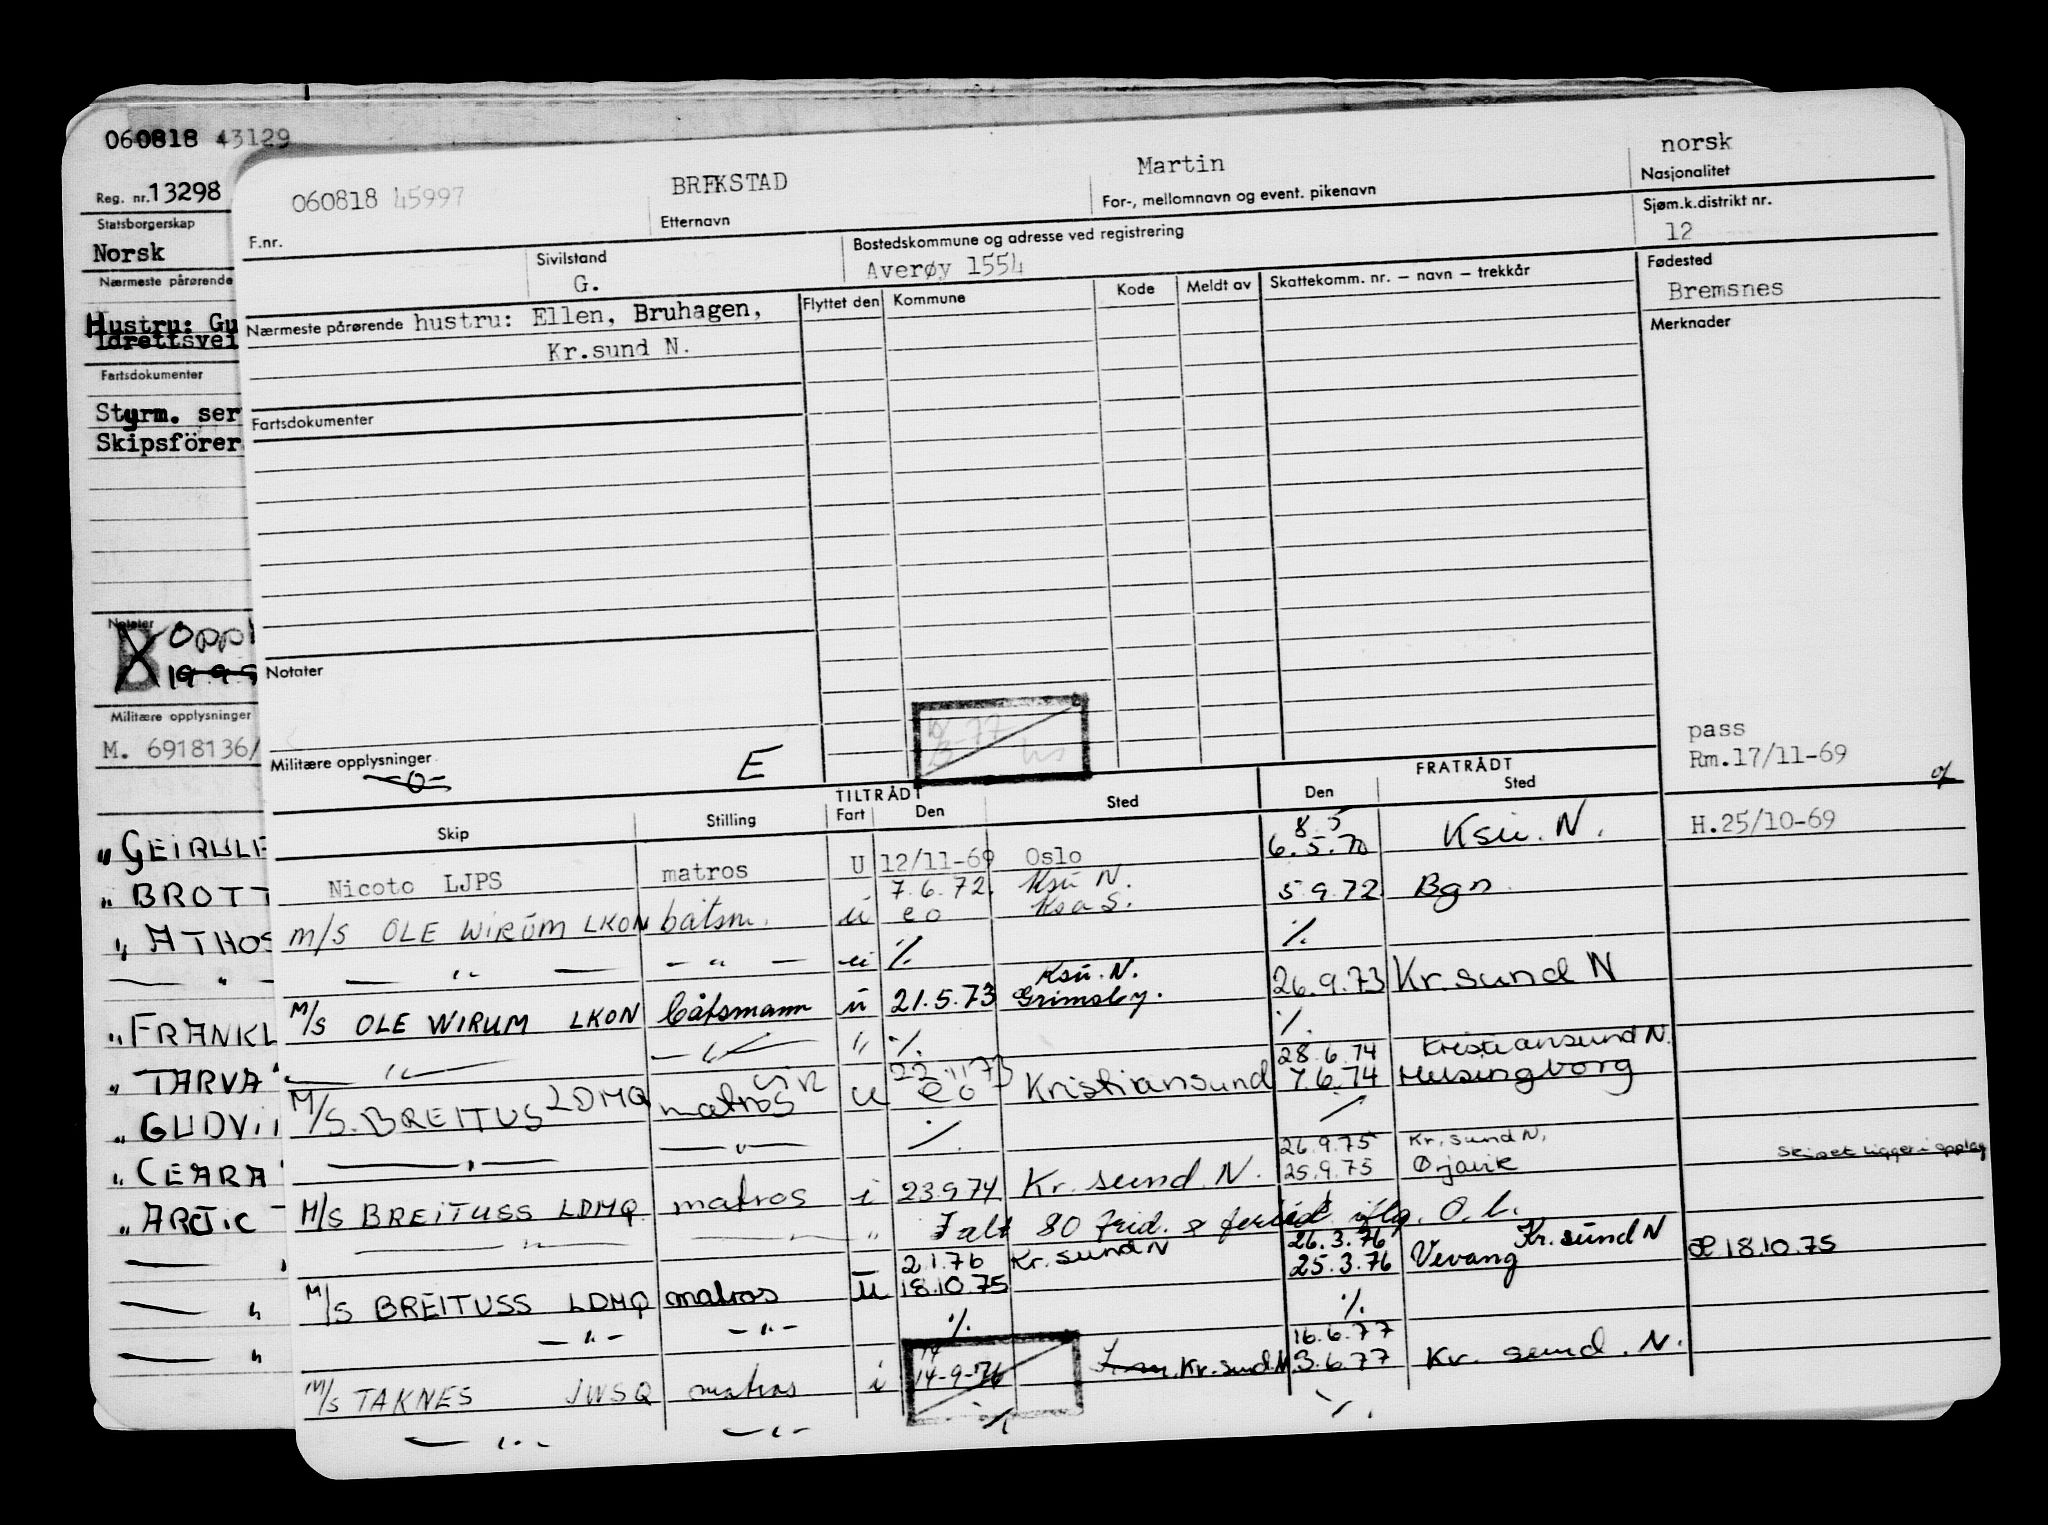 060818 43129
Reg. nr. 13298
Statsborgerskap
Norsk
Nærmeste pårørende
Hustru: Gu
Idrettsvei
Fartsdokumenter
Styrm. ser
Skipsförer
Notater
B Oppl
19.9.9
Militære opplysninger
M. 6918136/
" GEIRULF
" BROTT
" ATHOS
— " —
" FRANKL
" TARVA
" GUDVI
" CEARA
" ARCTIC
— "
— "
— "
060818 45997
F.nr.
BREKSTAD
Etternavn
Martin
For-, mellomnavn og event. pikenavn
norsk
Nasjonalitet
Sivilstand
G.
Bostedskommune og adresse ved registrering
Averøy 1554
Sjøm.k.distrikt nr.
12
Nærmeste pårørende hustru: Ellen, Bruhagen,
Kr.sund N.
Flyttet den Kommune Kode Meldt av Skattekomm. nr. – navn – trekkår
Fødested
Bremsnes
Merknader
Fartsdokumenter
Notater
Militære opplysninger
-0-
E
-77
pass
Rm.17/11-69
TILTRÅDT FRATRÅDT
Skip Stilling Fart Den Sted Den Sted
8.5
Nicoto LJPS matros U 12/11-69 Oslo 6.5.70 Ksu. N. H.25/10-69
7.6.72. Ksu N.
M/S OLE WIRUM LKON båtsm. u eo Ksa S. 5.9.72 Bgn
— " — — " — u ٪ ٪
Ksu. N.
M/S OLE WIRUM LKON båtsmann u 21.5.73 Grimsby. 26.9.73 Kr.sund N
— " — — " — " ٪ ٪
22.11.73 28.6.74 Kristiansund N.
M/S. BREITUS LDMQ matros u eo Kristiansund 7.6.74 Helsingborg
— " — — " — ٪ ٪
26.9.75 Kr.sund N.
M/S BREITUSS LDMQ matros i 23.9.74 Kr. sund N. 25.9.75 Ørjavik Skipet ligger i opplag
— " — — " — " I alt 80 frid. & feried. iflg. O.l.
2.1.76 Kr.sund N 26.3.76 Kr.sund N
M/S BREITUSS LDMQ matros u 18.10.75 25.3.76 Vevang Æ 18.10.75
— " — — " — ٪ ٪
16.6.77
M/S TAKNES JWSQ matros i 14-9-76 Kr.sund.N. 3.6.77 Kr. sund. N.
— " — — " — ٪ ٪